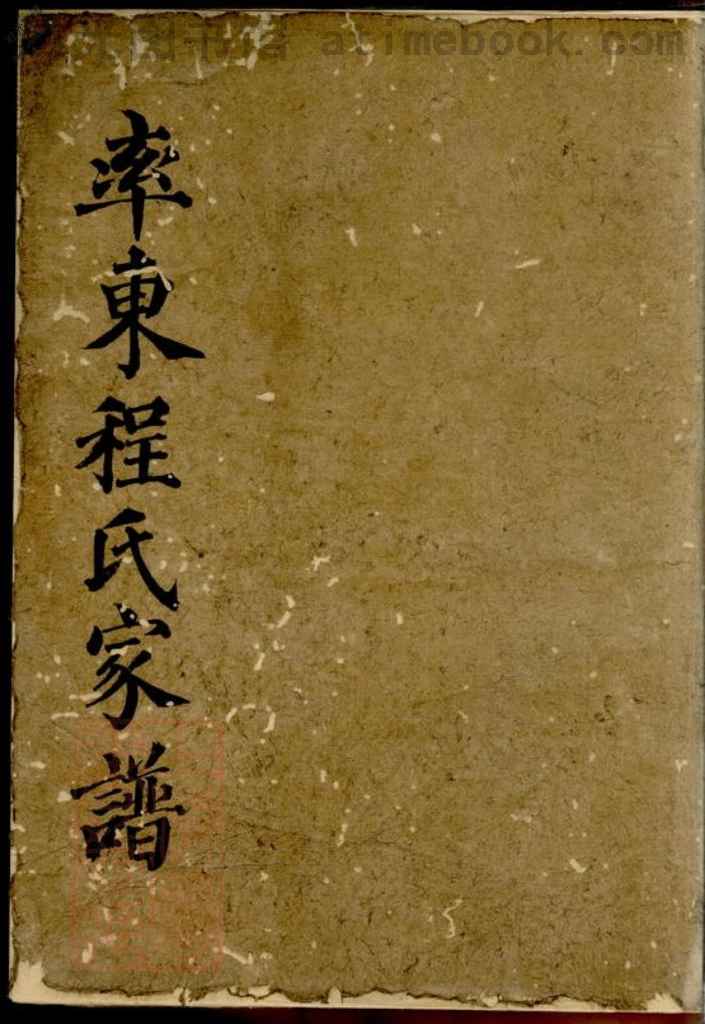 atimebook.com
率東程氏家譜